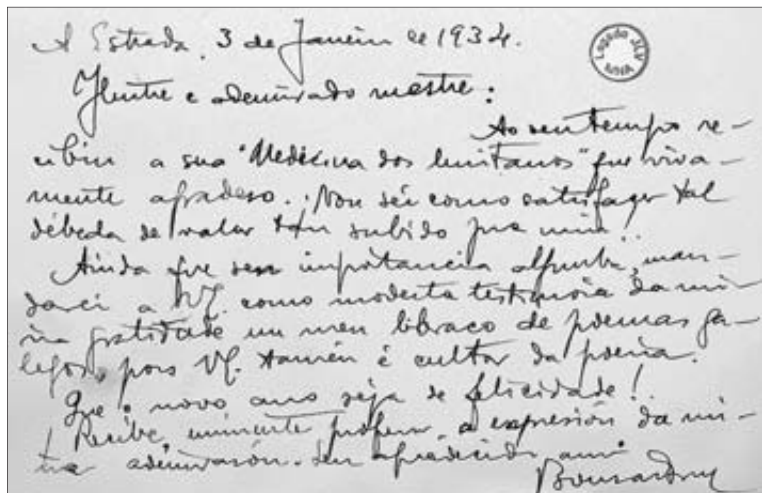 A Estrada, 3 de Janeiro de 1934.
Legado JLV
MNA
Ilustre e ademirado mestre:
Ao seu tempo re-
cibin a sua "Medicina dos lusitanos" que viva-
mente agradeso. Non sei como satisfager tal
débeda de valor tan subido pra min!
Ainda que sen importancia algunha, man-
darei a V. como modesta testimoia da mi-
ña gratidade un meu libraco de poemas ga-
legos, pois V. tamén é cultor da poesia.
Que o novo ano seja de felicidade!
Recibe, eminente profesor, a expresión da mi-
ña ademirasón. Seu agradecido